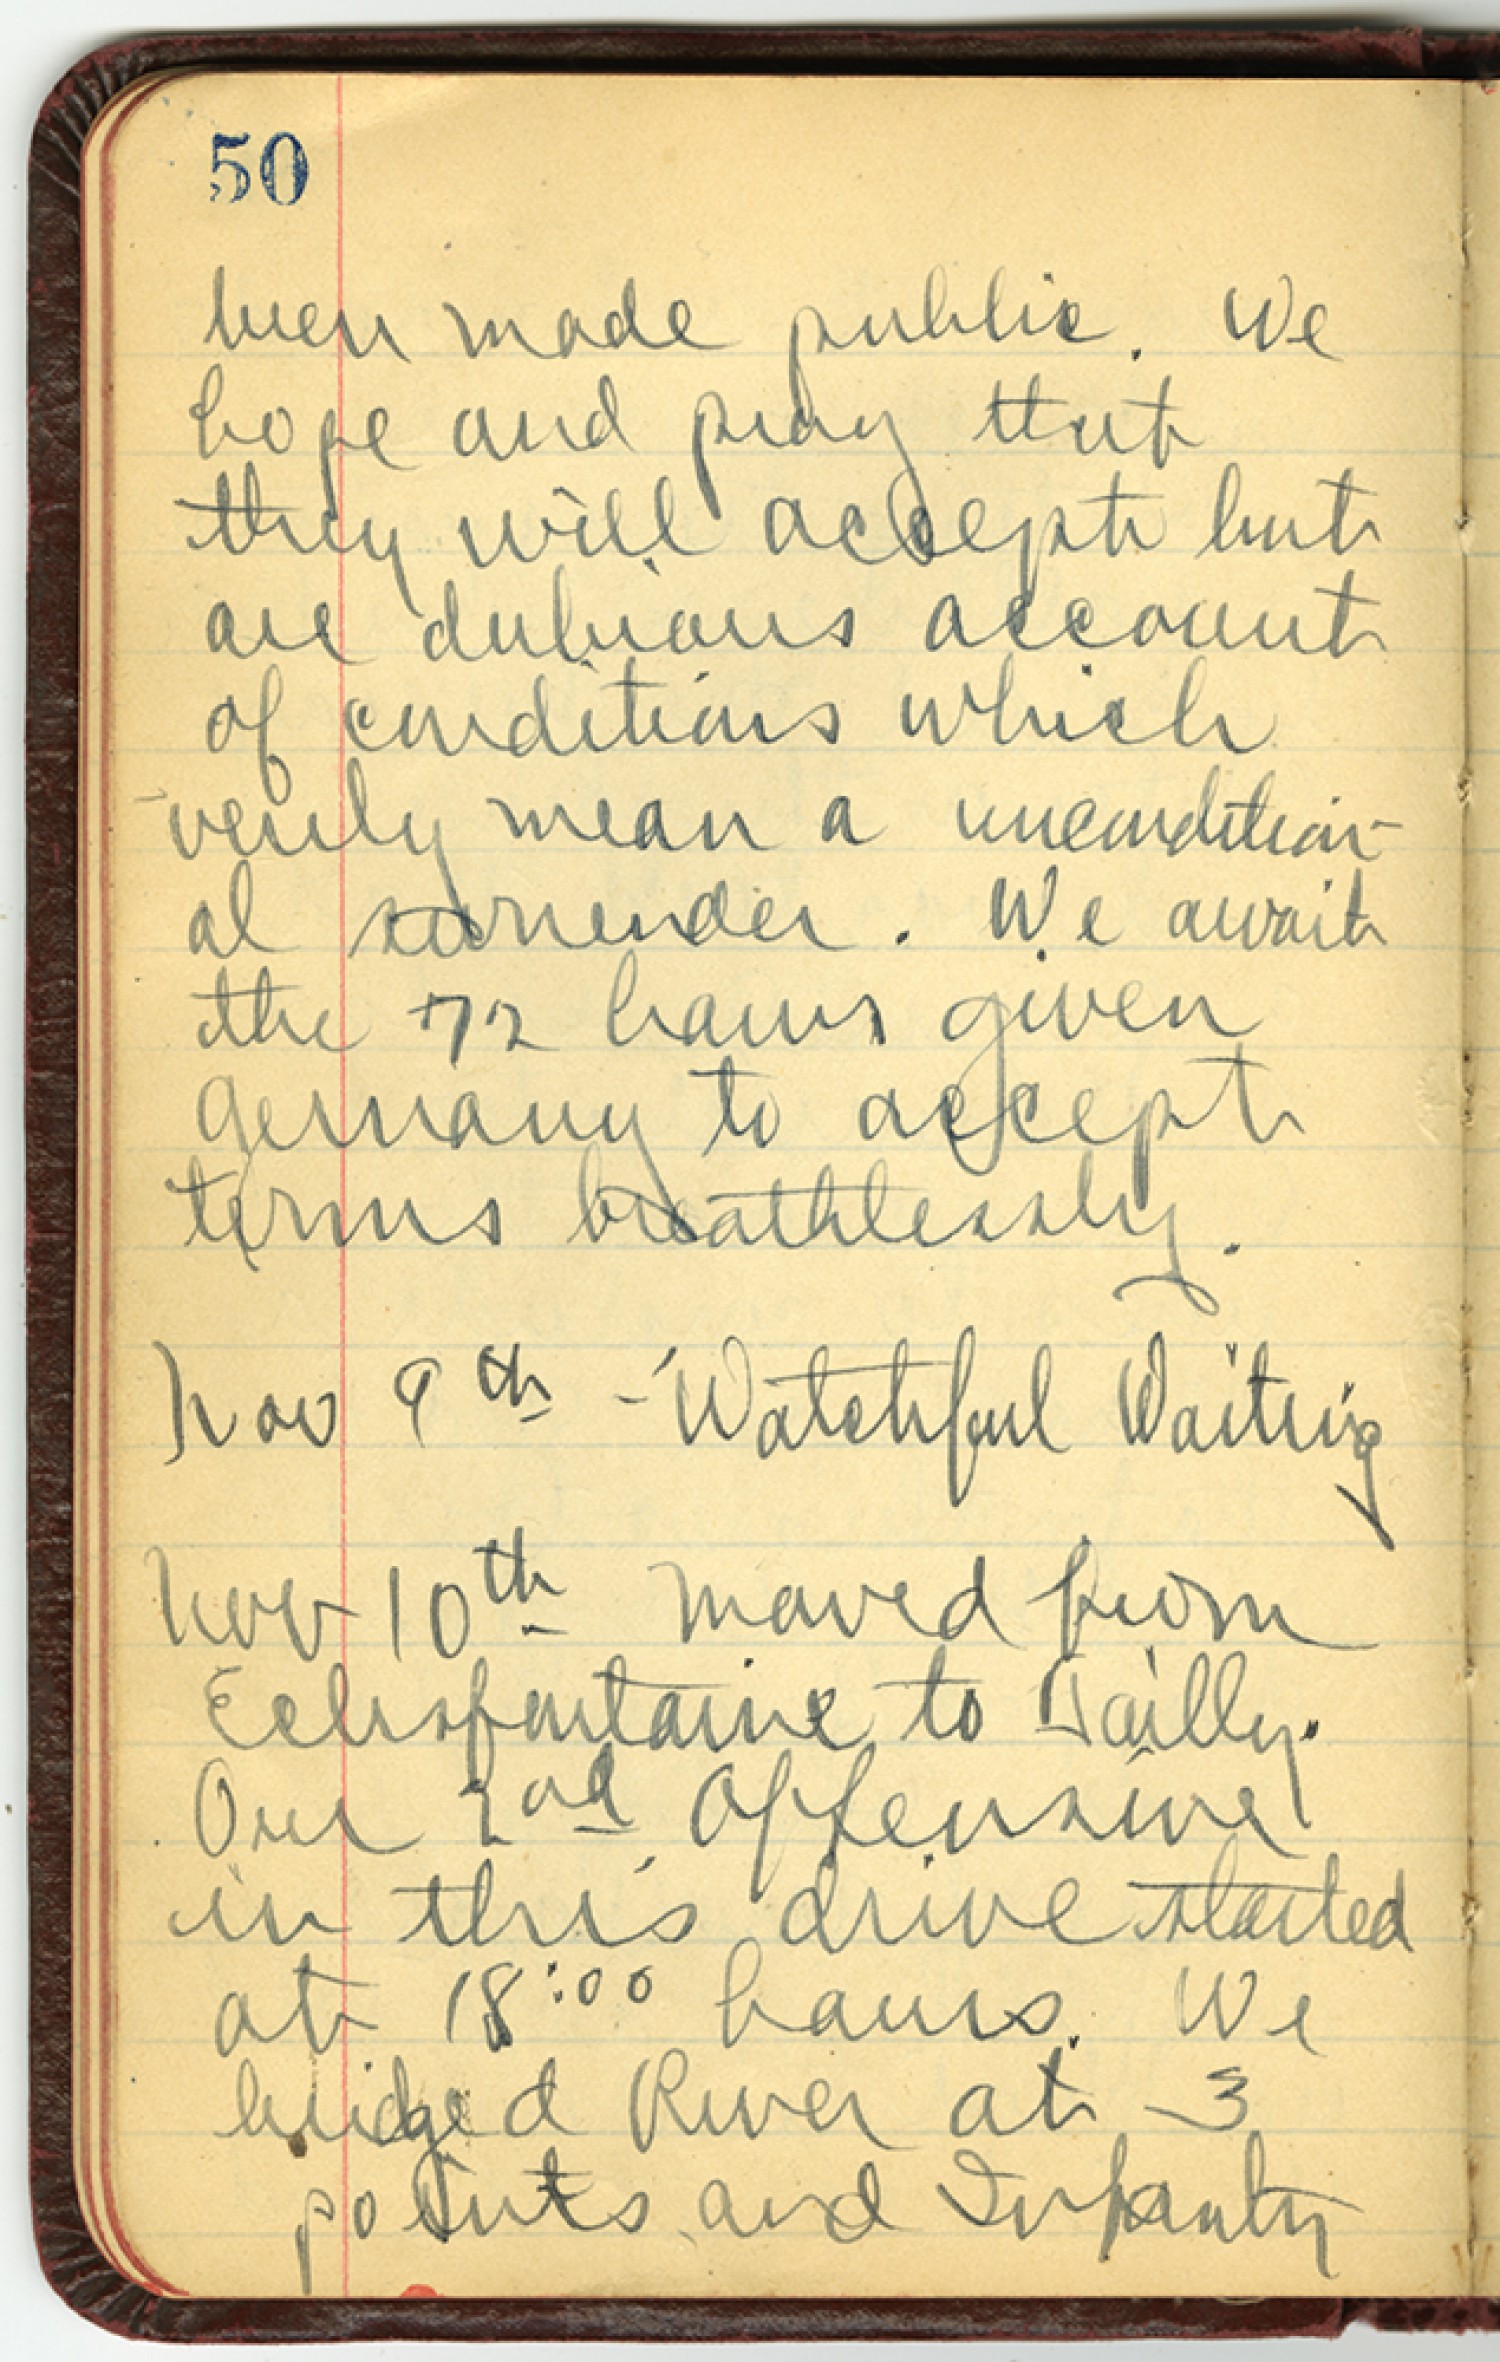 50
been made public. We
hope and pray that
they will accept but
are dubious account
of conditions which
verily mean a uncondition-
al surrender. We await
the 72 hours given
Germany to accept
terms breathlessly.
Nov 9th - Watchful Waiting
Nov 10th moved from
Eclisfontaine to
Our 2nd Offensive
in this drive started
at 18:00 hours. We
bridged River at 3
points and Infantry